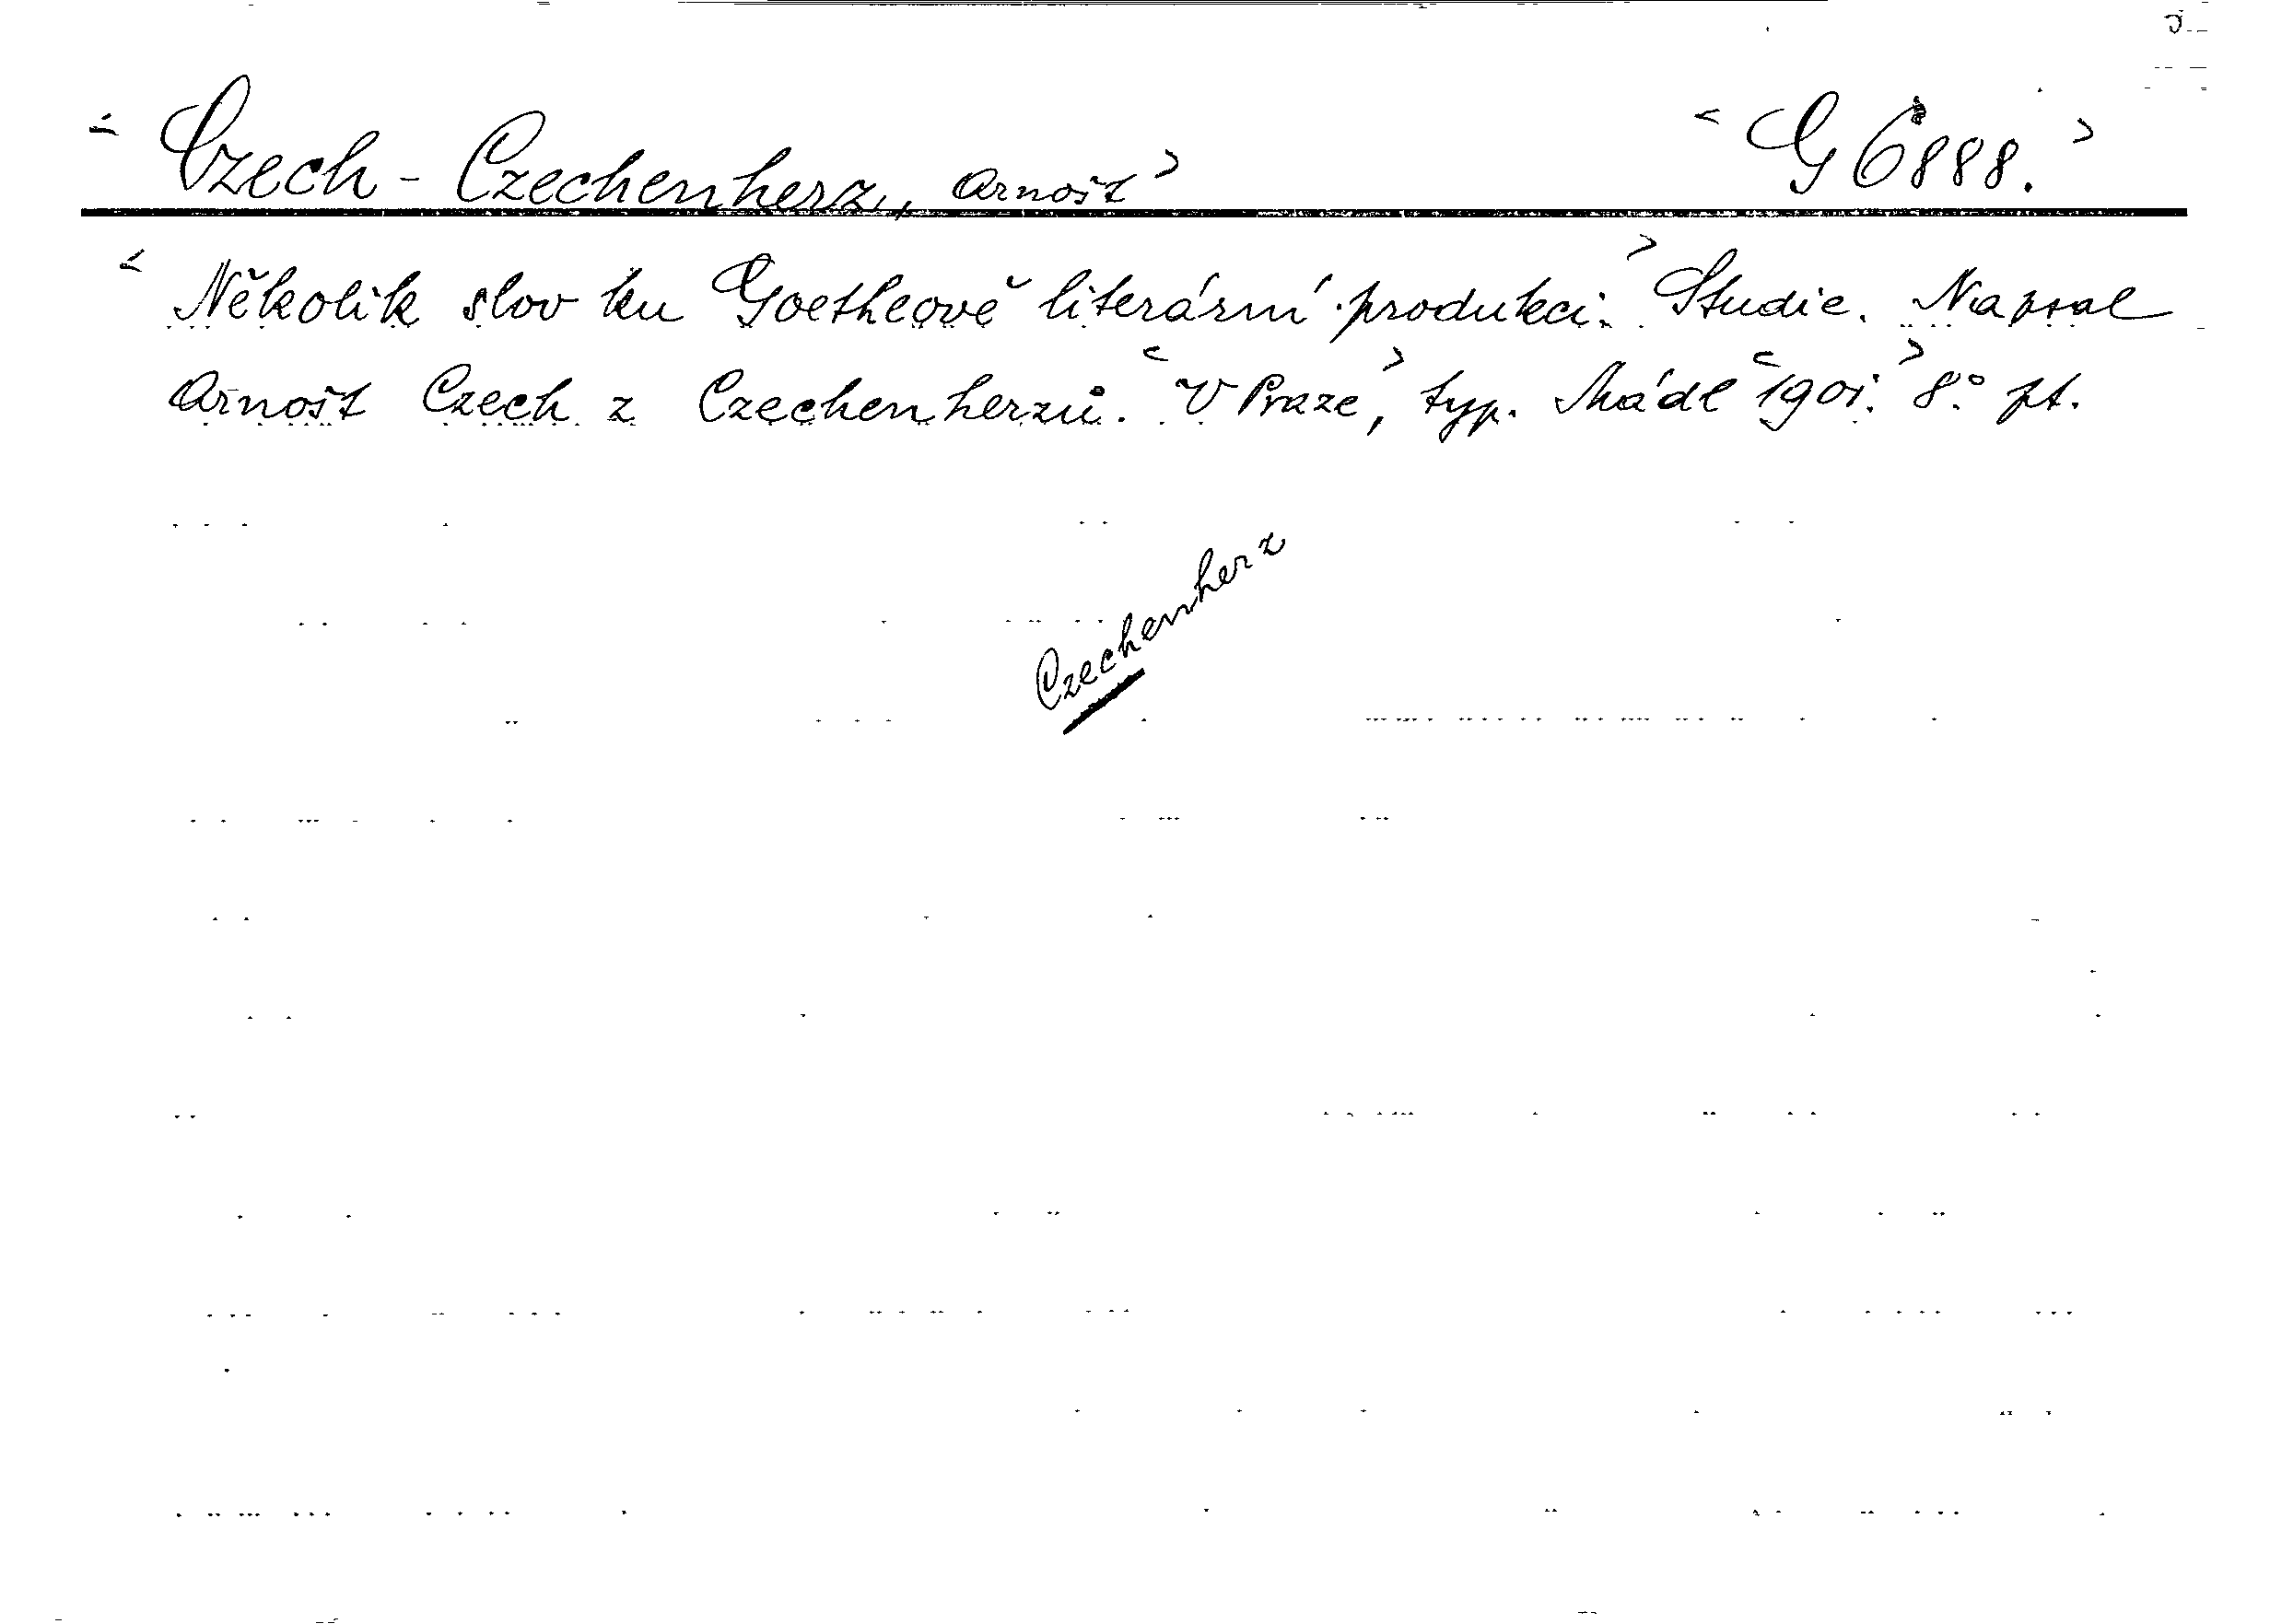 < Czech - Czechenherz, Arnošt > < G 6888. >
< Několik slov ku Goetheově literární produkci. > Studie. Napsal
Arnošt Czech z Czechenherzů. < V Praze >, typ. Mádl < 1901. > 8° pt.
Czechenherz